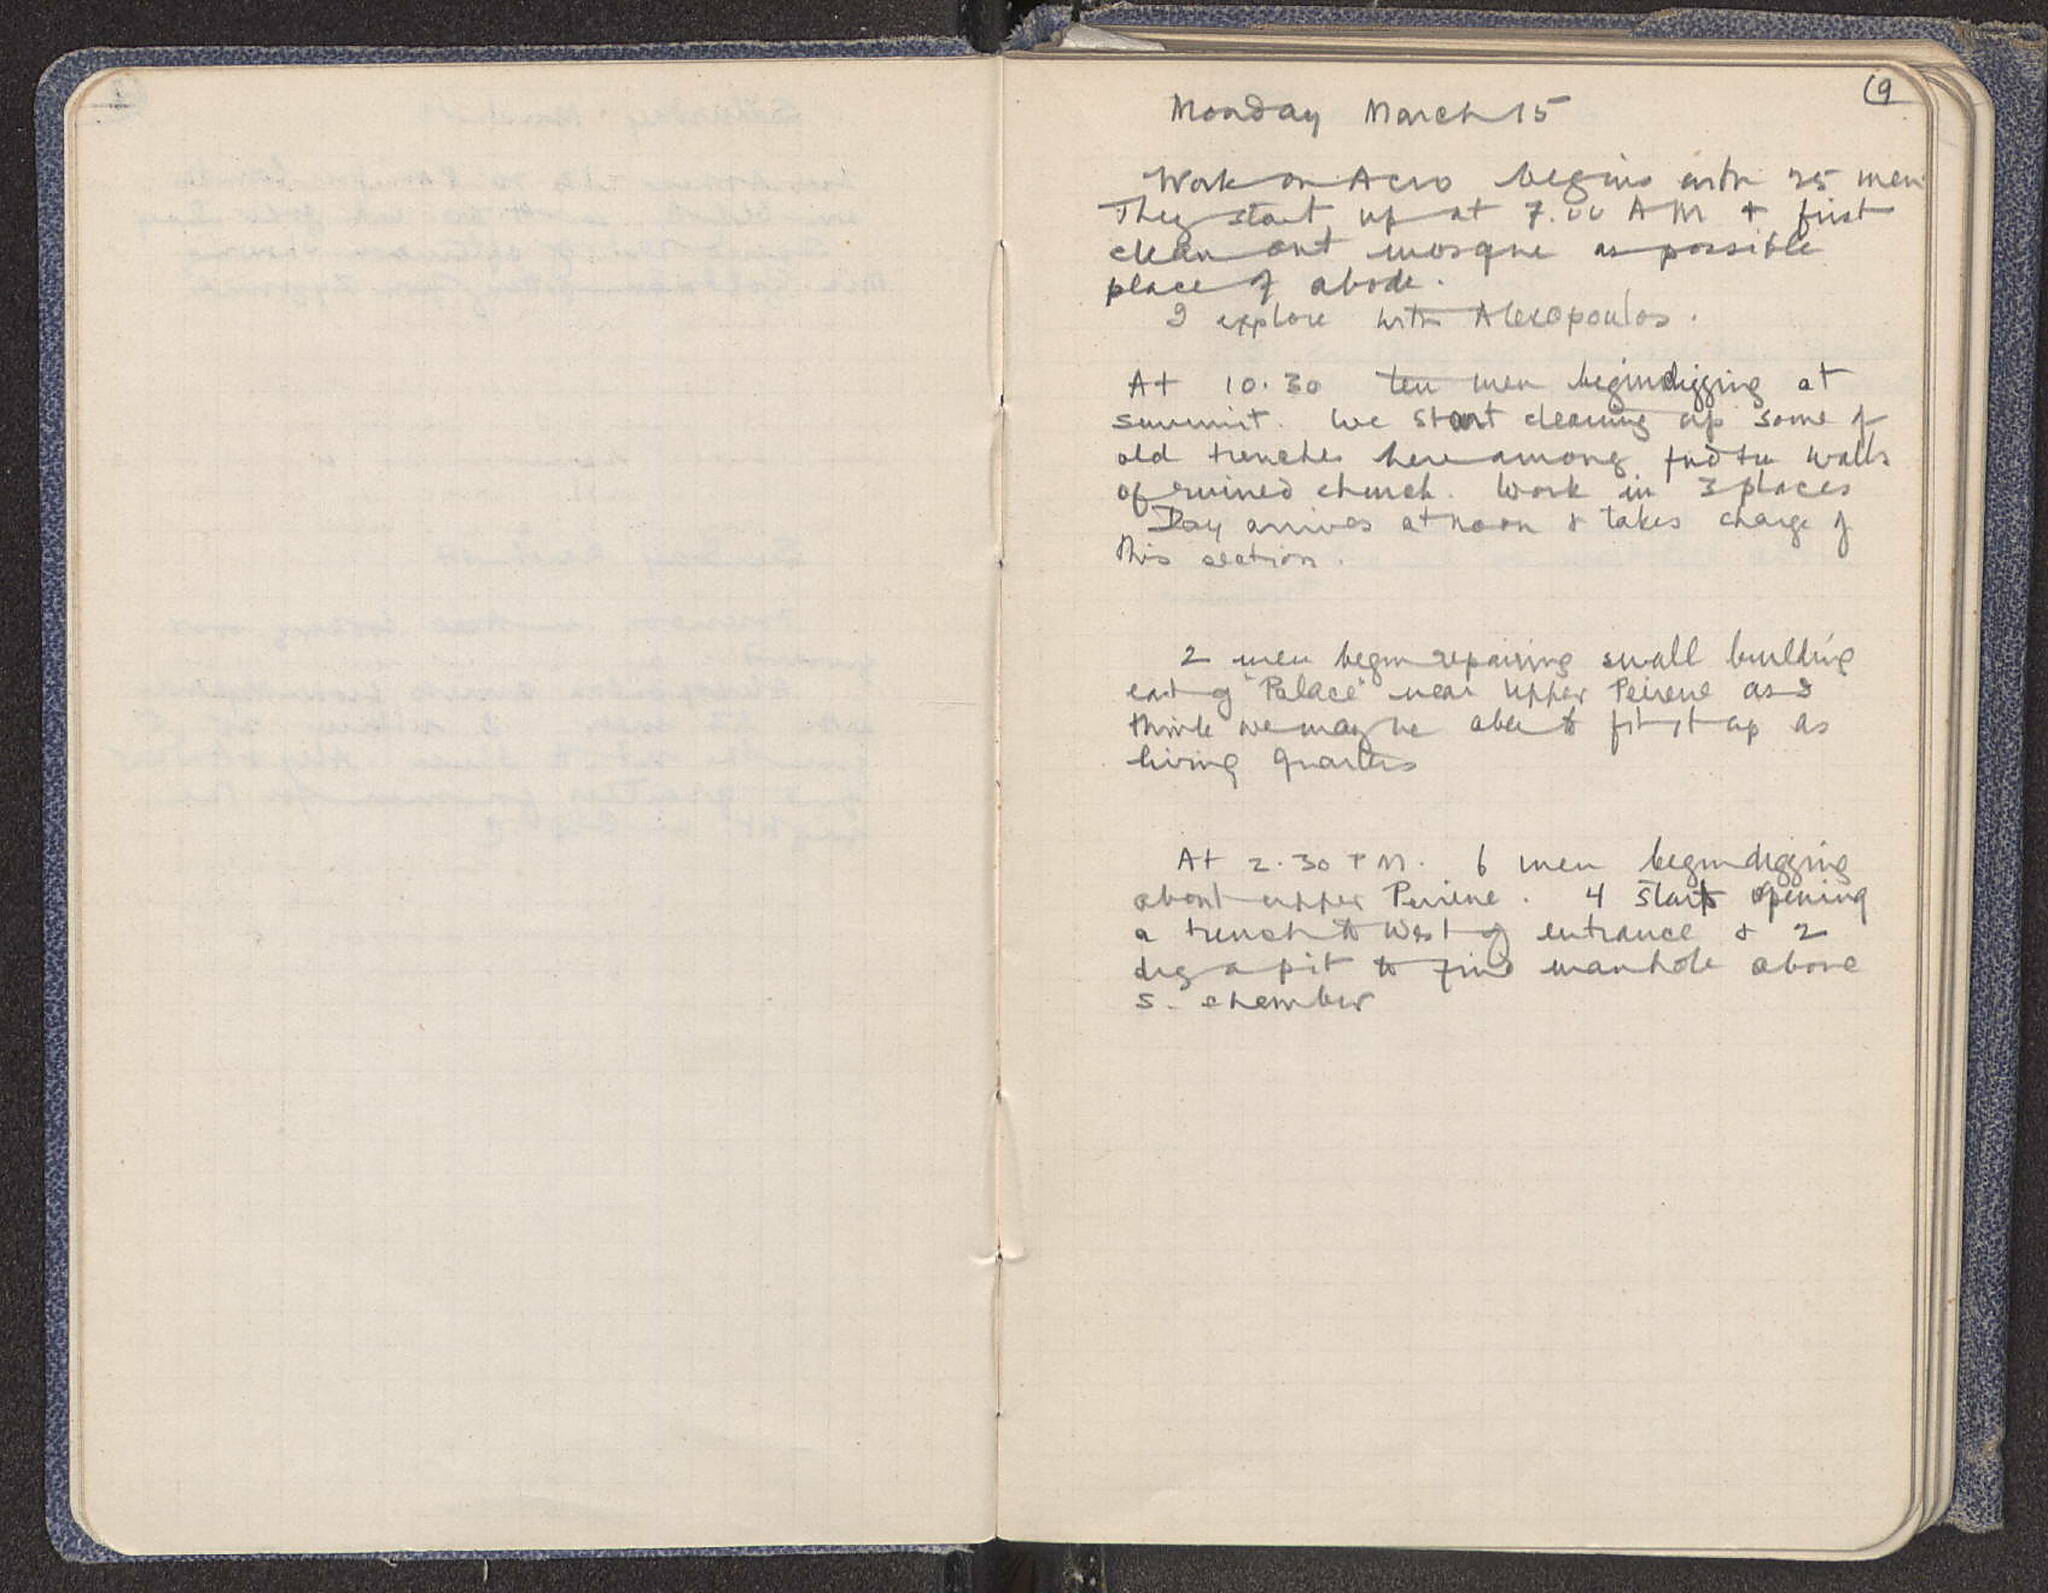 9
Monday March 15
Work on Acro begins with 25 men
They start up at 7.00 AM + first
clean out mosque as possible
place of abode.
I explore with Alexopoulos.
At 10.30 ten men begin digging at
summit. We start cleaning up some of
old trenches here among fndtn walls
of ruined church. Work in 3 places
Day arrives at noon & takes charge of
this section.
2 men begin repairing small building
east of "Palace" near Upper Peirene as I
think we may be able to fit it up as
living quarters
At 2.30 PM. 6 men begin digging
about upper Peirene. 4 start opening
a trench to West of entrance & 2
dig a pit to find manhole above
S. chamber